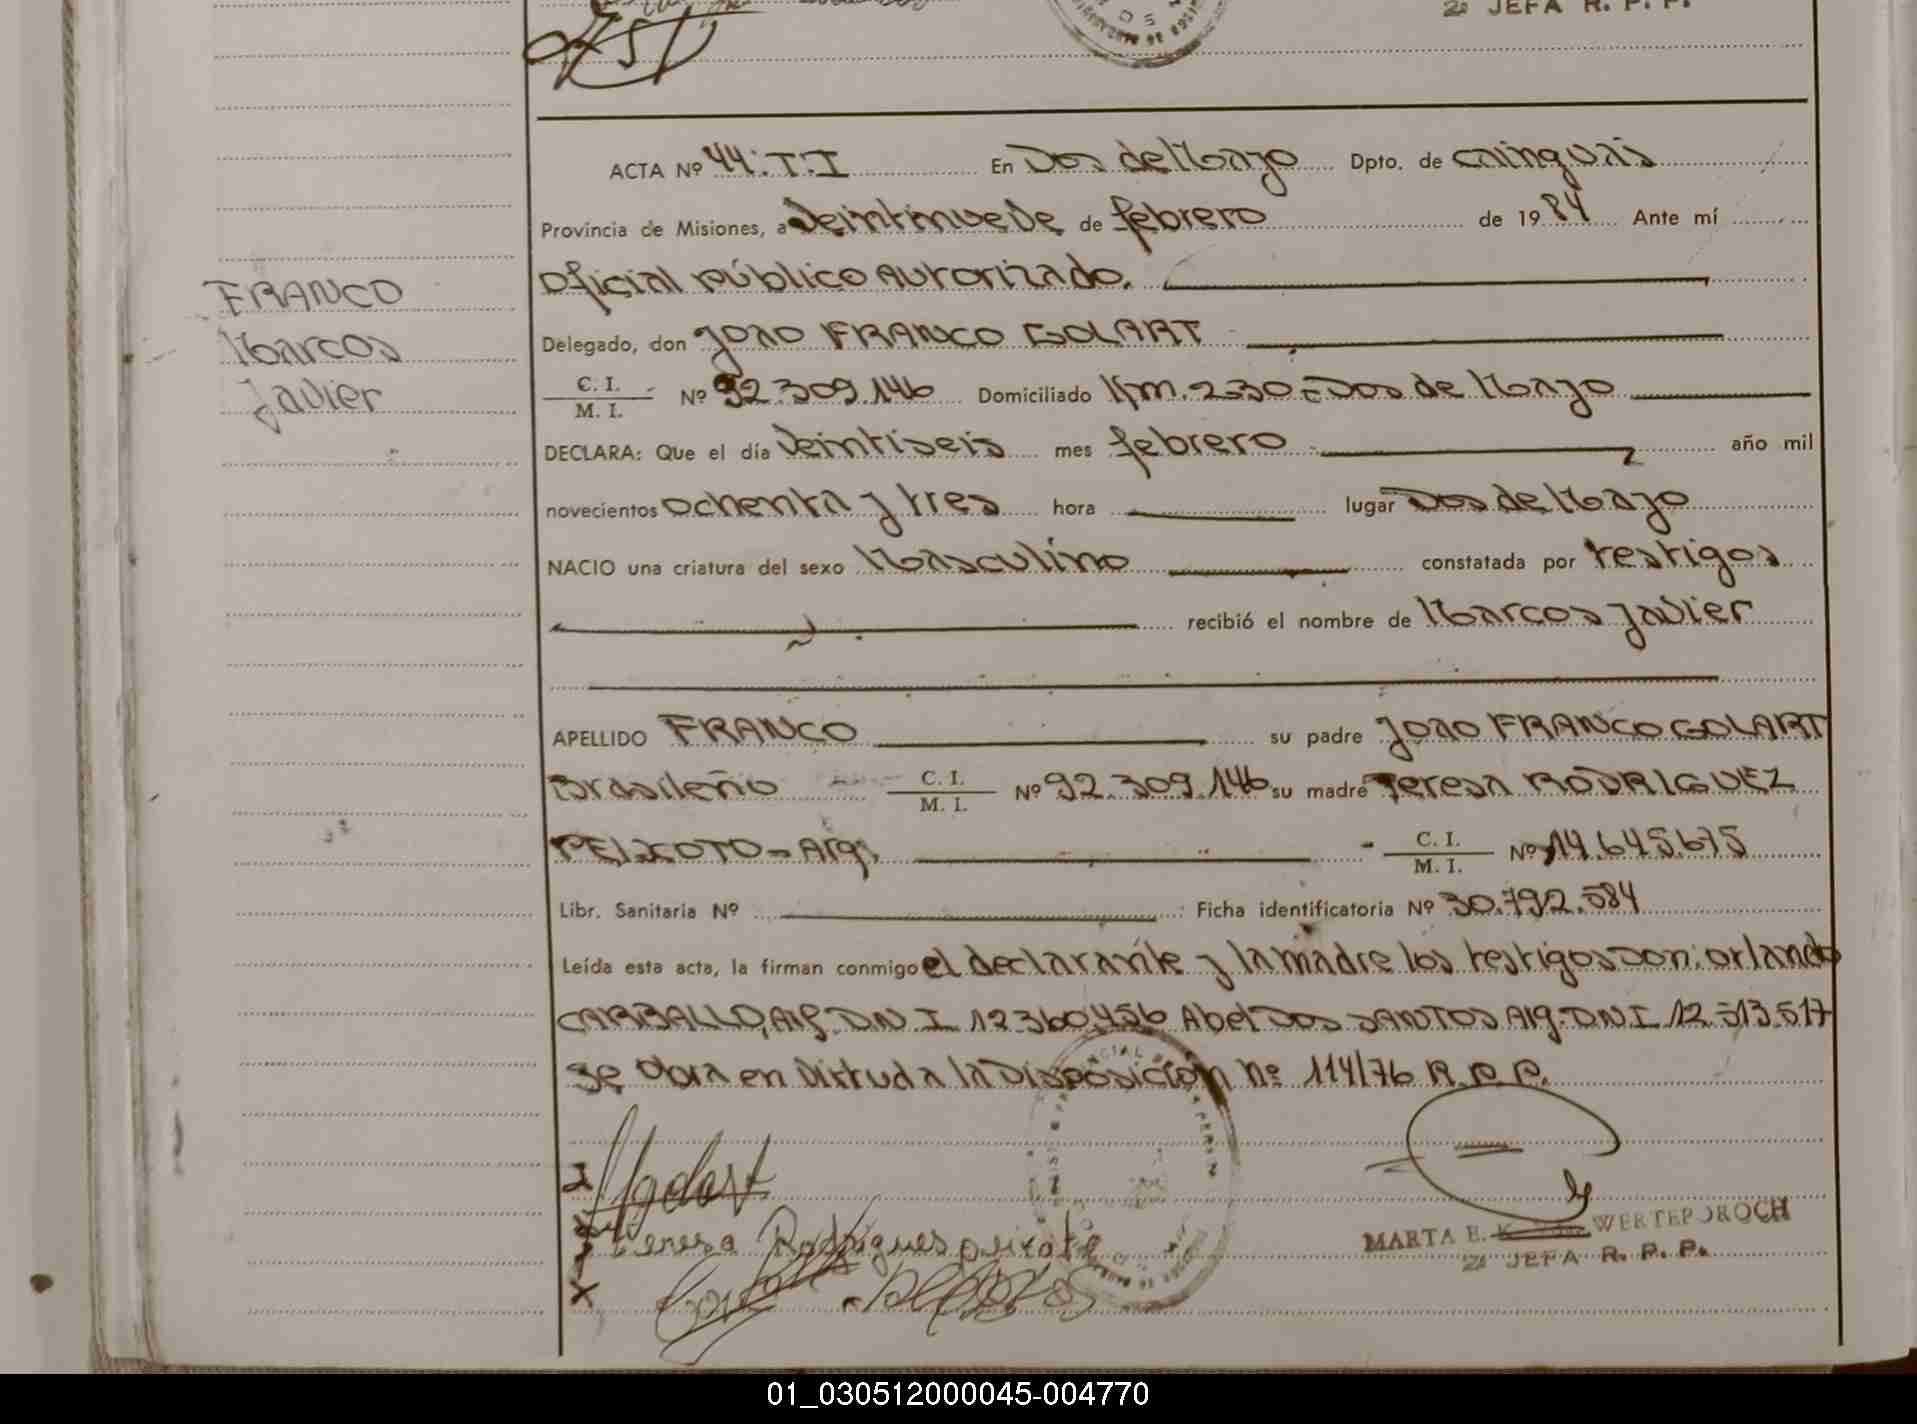 2ª JEFA R. P. P.
ACTA Nº 44.T.I En Dos de Mayo Dpto. de Cainguás
Provincia de Misiones, a Veintinueve de febrero de 1984 Ante mí
Oficial público Autorizado.
FRANCO
Marcos
Javier
Delegado, don Joao FRANCO GOLART
C. I.
M. I. Nº 92.309.146 Domiciliado Km. 230 - Dos de Mayo
DECLARA: Que el día Veintiseis mes febrero año mil
novecientos ochenta y tres hora lugar Dos de Mayo
NACIO una criatura del sexo Masculino constatada por testigos
recibió el nombre de Marcos Javier
APELLIDO FRANCO su padre Joao FRANCO GOLART
Brasileño C. I.
M. I. Nº 92.309.146 su madre Teresa RODRIGUEZ
PEIXOTO - Arg. C. I.
M. I. Nº 14.645.675
Libr. Sanitaria Nº Ficha identificatoria Nº 30.792.584
Leída esta acta, la firman conmigo el declarante y la madre los testigos Don: Orlando
CARBALLO, Arg. D N I 12360456 Abel DOS SANTOS Arg. D N I 12.513.517
se obra en Virtud a la Disposición Nº 114/76 R. P. P.
Teresa Rodrigues
MARTA E. WERTEPOROCH
2ª JEFA R. P. P.
01_030512000045-004770